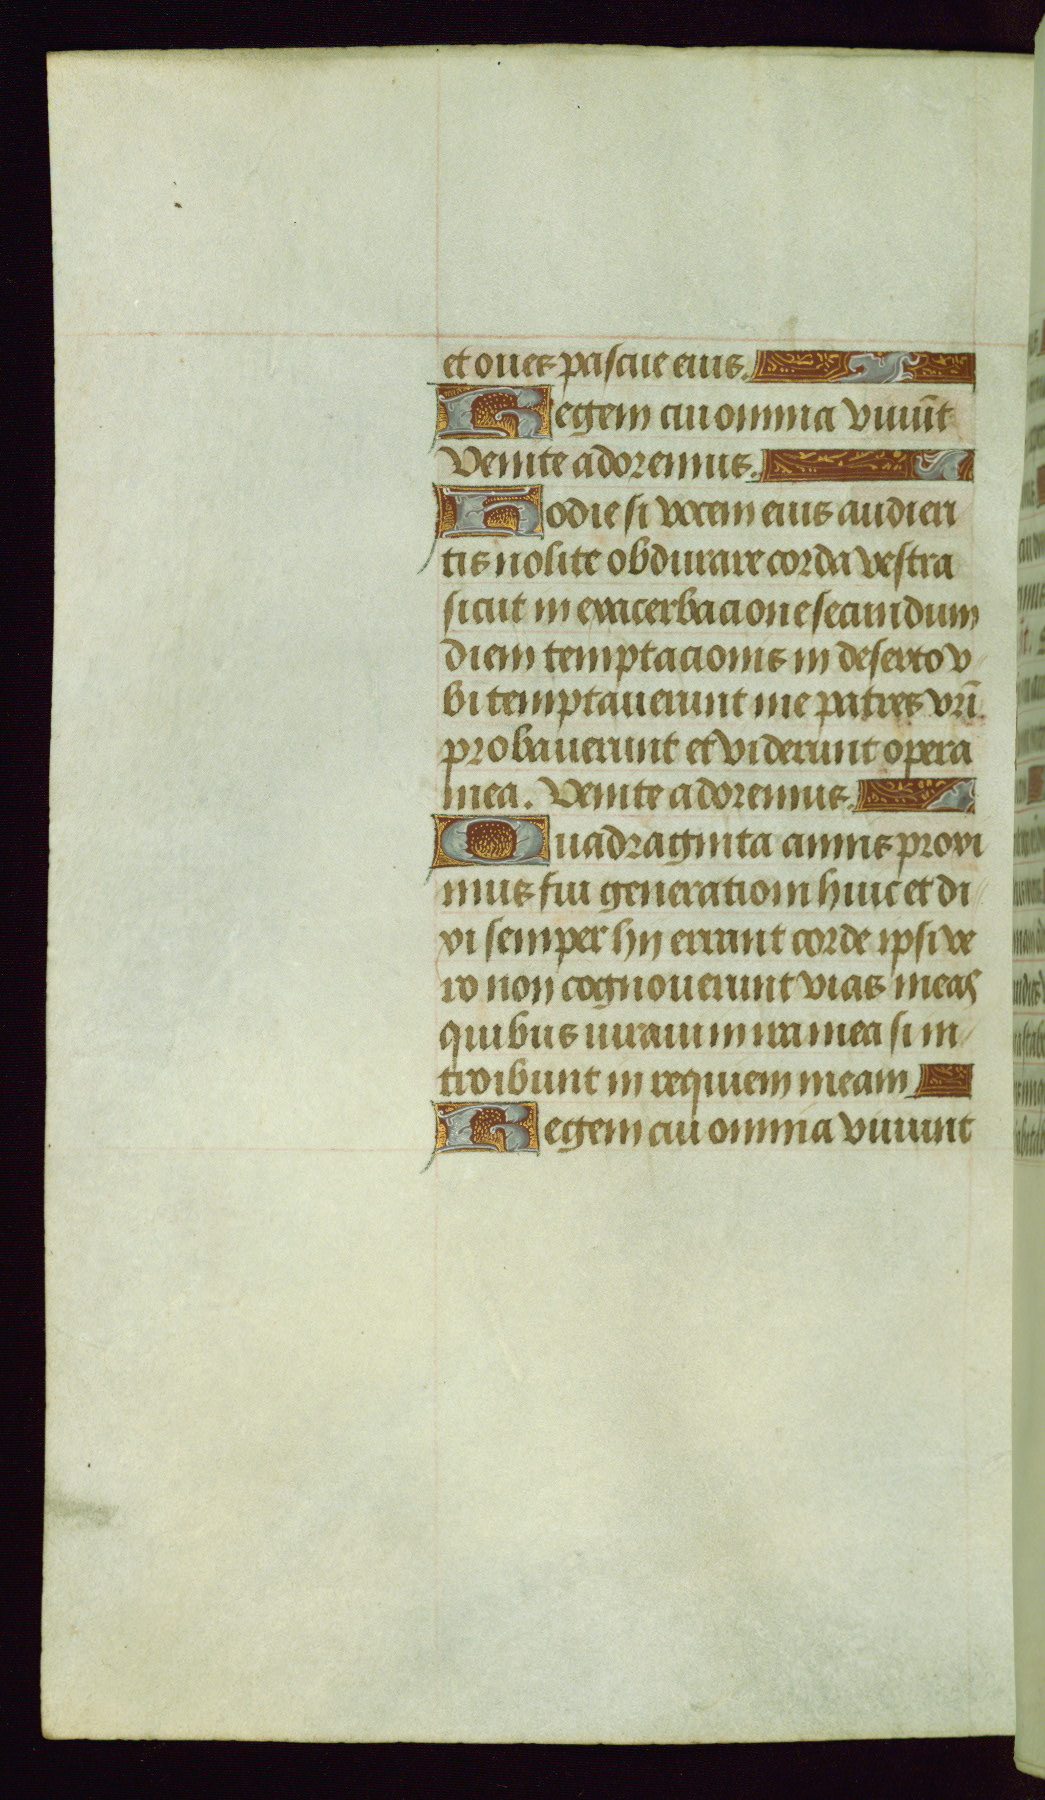 et oues pascue eius.
Regem cui omnia viuūt
Venite adoremus.
Hodie si vocem eius audieri
tis nolite obdurare corda vestra
sicut in exacerbacione secundum
diem temptacionis in deserto v
bi temptauerunt me patres vrī
probauerunt et viderunt opera
mea. Venite adoremus.
Quadraginta annis proxi
mus fui generationi huic et di
xi semper hij errant corde ipsi ve
ro non cognouerunt vias meas
quibus iuraui in ira mea si in
troibunt in requiem meam
Regem cui omnia viuunt